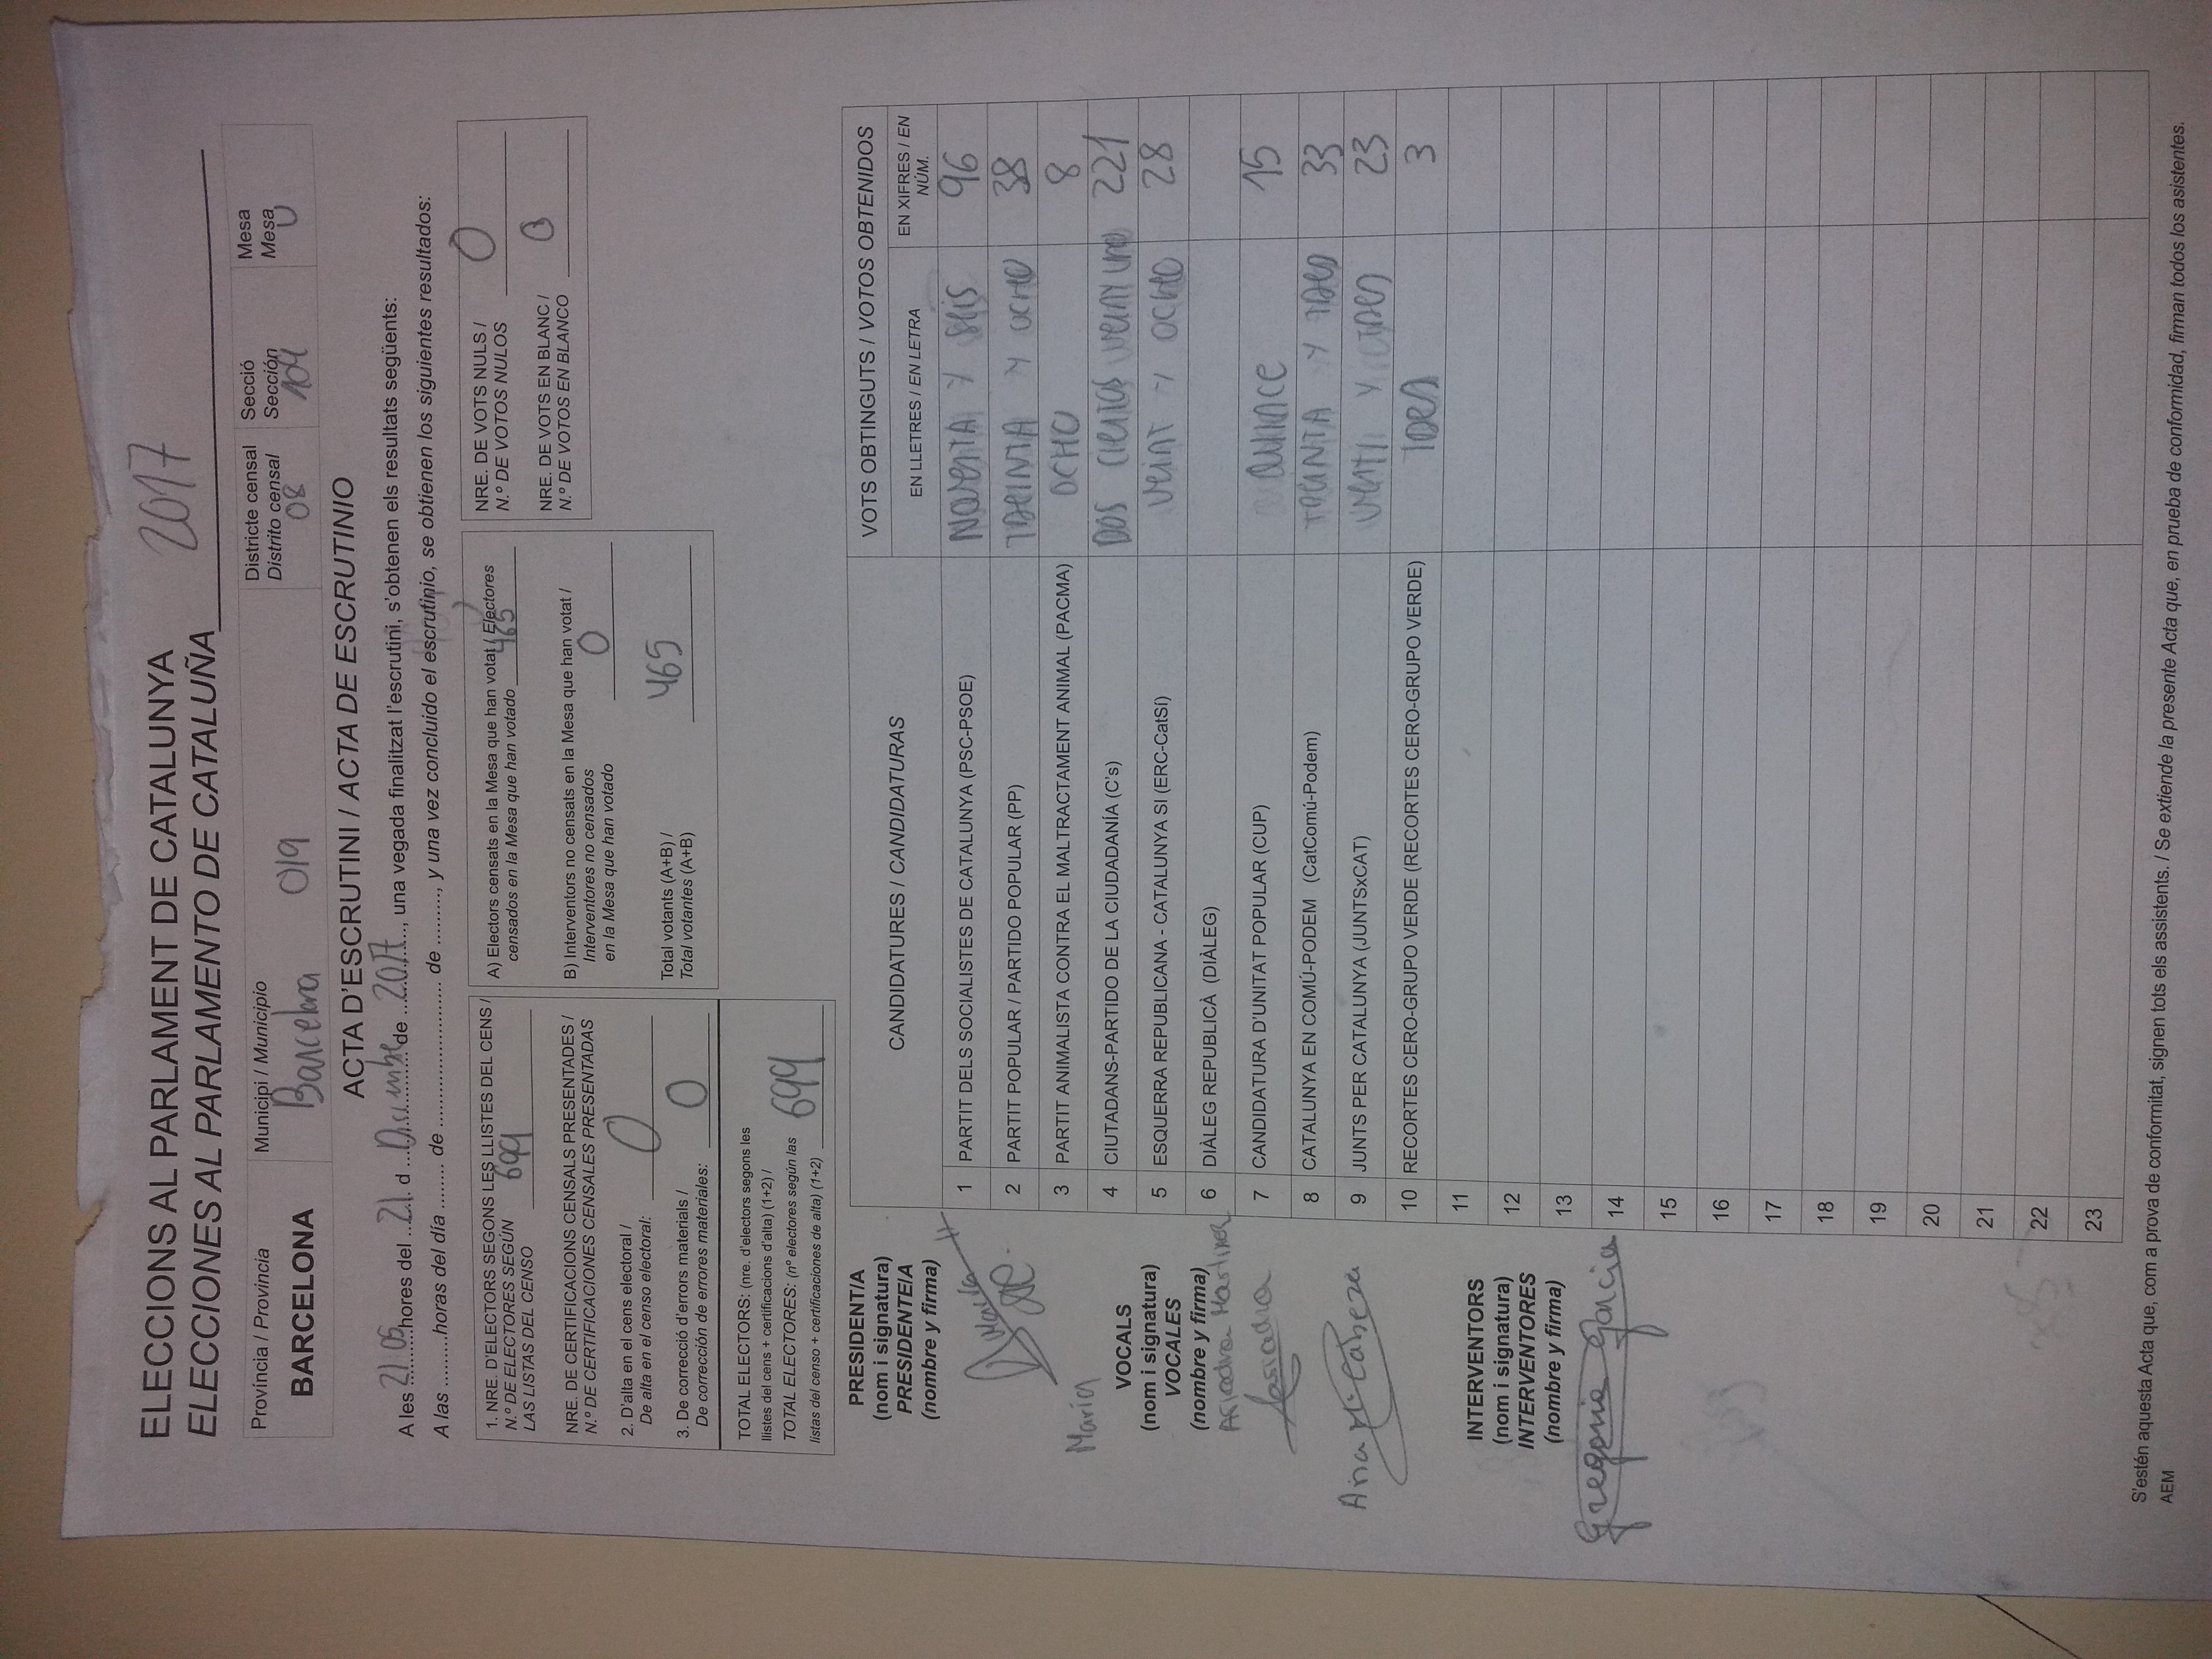 ELECCIONS AL PARLAMENT DE CATALUNYA
ELECCIONES AL PARLAMENTO DE CATALUÑA 2017
Província / Provincia
BARCELONA
Municipi / Municipio
Barcelona 019
Districte censal
Distrito censal
08
Secció
Sección
104
Mesa
Mesa
U
ACTA D'ESCRUTINI / ACTA DE ESCRUTINIO
A les 21 05 hores del 21 d Diciembre de 2017, una vegada finalitzat l'escrutini, s'obtenen els resultats següents:
A las .........horas del día ........ de ......................... de ........., y una vez concluido el escrutinio, se obtienen los siguientes resultados:
1. NRE. D'ELECTORS SEGONS LES LLISTES DEL CENS /
N.º DE ELECTORES SEGÚN
LAS LISTAS DEL CENSO 699
NRE. DE CERTIFICACIONS CENSALS PRESENTADES /
N.º DE CERTIFICACIONES CENSALES PRESENTADAS
2. D'alta en el cens electoral /
De alta en el censo electoral: 0
3. De correcció d'errors materials /
De corrección de errores materiales: 0
TOTAL ELECTORS: (nre. d'electors segons les
llistes del cens + certificacions d'alta) (1+2) /
TOTAL ELECTORES: (nº electores según las
listas del censo + certificaciones de alta) (1+2) 699
A) Electors censats en la Mesa que han votat / Electores
censados en la Mesa que han votado 465
B) Interventors no censats en la Mesa que han votat /
Interventores no censados
en la Mesa que han votado 0
Total votants (A+B) /
Total votantes (A+B) 465
NRE. DE VOTS NULS /
N.º DE VOTOS NULOS 0
NRE. DE VOTS EN BLANC /
N.º DE VOTOS EN BLANCO 0
PRESIDENT/A
(nom i signatura)
PRESIDENTE/A
(nombre y firma)
María
María
VOCALS
(nom i signatura)
VOCALES
(nombre y firma)
Ariadna Martinez
Ariadna
Ana Mª Cabeza
INTERVENTORS
(nom i signatura)
INTERVENTORES
(nombre y firma)
Gregoria Garcia
CANDIDATURES / CANDIDATURAS
VOTS OBTINGUTS / VOTOS OBTENIDOS
EN LLETRES / EN LETRA
EN XIFRES / EN NÚM.
1 PARTIT DELS SOCIALISTES DE CATALUNYA (PSC-PSOE) NOVENTA Y SEIS 96
2 PARTIT POPULAR / PARTIDO POPULAR (PP) TREINTA Y OCHO 38
3 PARTIT ANIMALISTA CONTRA EL MALTRACTAMENT ANIMAL (PACMA) OCHO 8
4 CIUTADANS-PARTIDO DE LA CIUDADANÍA (C's) DOS CIENTOS VEINTYUNO 221
5 ESQUERRA REPUBLICANA - CATALUNYA SI (ERC-CatSí) VEINT Y OCHO 28
6 DIÀLEG REPUBLICÀ (DIÀLEG)
7 CANDIDATURA D'UNITAT POPULAR (CUP) QUINCE 15
8 CATALUNYA EN COMÚ-PODEM (CatComú-Podem) TREINTA Y TRES 33
9 JUNTS PER CATALUNYA (JUNTSxCAT) VEINTI Y TRES 23
10 RECORTES CERO-GRUPO VERDE (RECORTES CERO-GRUPO VERDE) TRES 3
11
12
13
14
15
16
17
18
19
20
21
22
23
S'estén aquesta Acta que, com a prova de conformitat, signen tots els assistents. / Se extiende la presente Acta que, en prueba de conformidad, firman todos los asistentes.
AEM